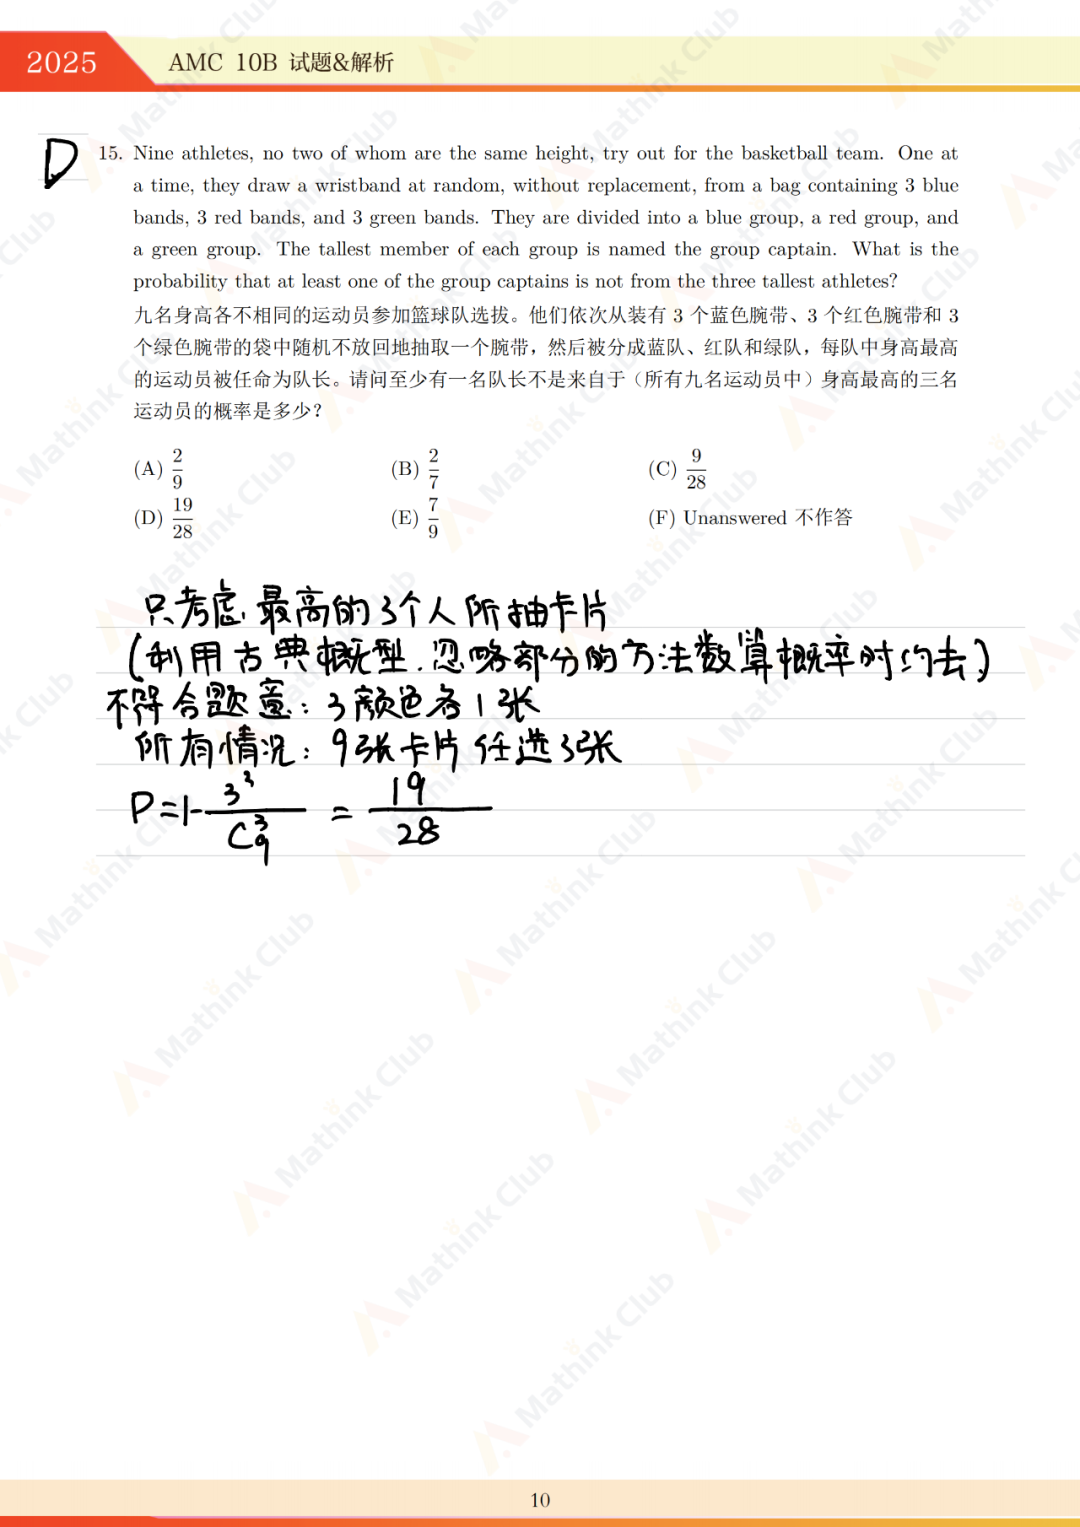 2025 AMC 10B 试题&解析
D
15. Nine athletes, no two of whom are the same height, try out for the basketball team. One at
a time, they draw a wristband at random, without replacement, from a bag containing 3 blue
bands, 3 red bands, and 3 green bands. They are divided into a blue group, a red group, and
a green group. The tallest member of each group is named the group captain. What is the
probability that at least one of the group captains is not from the three tallest athletes?
九名身高各不相同的运动员参加篮球队选拔。他们依次从装有 3 个蓝色腕带、3 个红色腕带和 3
个绿色腕带的袋中随机不放回地抽取一个腕带，然后被分成蓝队、红队和绿队，每队中身高最高
的运动员被任命为队长。请问至少有一名队长不是来自于（所有九名运动员中）身高最高的三名
运动员的概率是多少？
(A) 2/9 (B) 2/7 (C) 9/28
(D) 19/28 (E) 7/9 (F) Unanswered 不作答
只考虑最高的3个人所抽卡片
(利用古典概型.忽略部分的方法数算概率时约去)
不符合题意：3颜色各1张
所有情况：9张卡片任选3张
P=1-3³/C₉³ = 19/28
10
Mathink Club